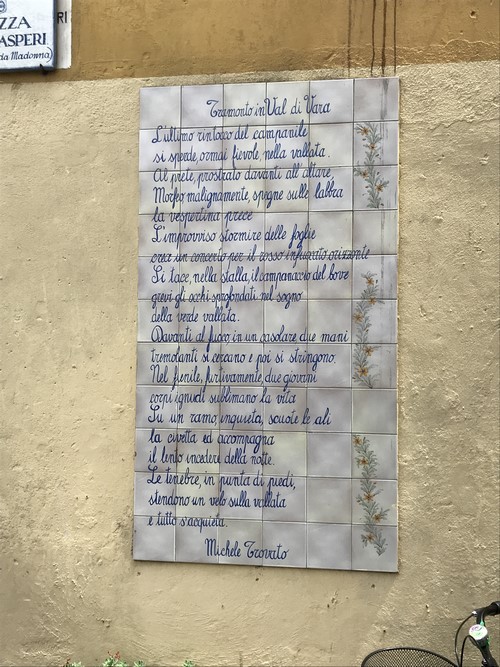 ZZA
ASPERI
da Madonna)
RI
Tramonto in Val di Vara
L'ultimo rintocco del campanile
si sperde, ormai fievole, nella vallata.
Al prete, prostrato davanti all'altare,
Morfeo malignamente, spegne sulle labbra
la vespertina prece
L'improvviso stormire delle foglie
crea un concerto per il rosso infuocato orizzonte
Si tace, nella stalla, il campanaccio del bove
grevi gli occhi sprofondati nel sogno
della verde vallata.
Davanti al fuoco in un casolare due mani
tremolanti si cercano e poi si stringono.
Nel fienile, furtivamente, due giovani
corpi ignudi sublimano la vita
Su un ramo inquieta, scuote le ali
la civetta ed accompagna
il lento incedere della notte.
Le tenebre, in punta di piedi,
stendono un velo sulla vallata
e tutto s'acquieta.
Michele Trovato